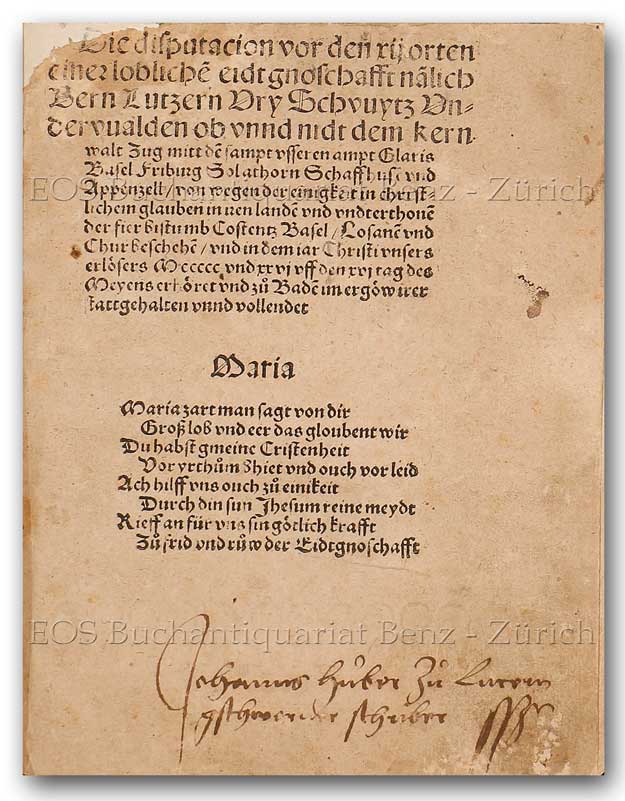 Die disputacion vor den xij orten
einer loblichē eidtgnoschafft nālich
Bern Lutzern Vry Schvuytz Vn-
dervualden ob vnnd nidt dem kern
walt Zug mitt dē sampt vsseren ampt Glaris
Basel Friburg Solathorn Schaffhusē vnd
Appenzell / von wegen der einigkeit in christ
lichem glauben in iren landē vnd vndterthonē
der fier bistumb Costentz Basel / Losanē vnd
Chur beschehē / vnd in dem iar Christi vnsers
erlösers Mccccc vnd xxvj vff den xvj tag des
Meyens erhöret vnd zů Badē im ergöw irer
stattgehalten vnnd vollendet
Maria
Maria zart man sagt von dir
Groß lob vnd eer das gloubent wir
Du habst gmeine Cristenheit
Vor yrthům bhiet vnd ouch vor leid
Ach hilff vns ouch zů einikeit
Durch din sun Jhesum reine meydt
Rieff an für vns sin götlich krafft
Zů frid vnd růw der Eidtgnoschafft
Johannes Hůber Zů Lucern
gschworner schriber
EOS Buchantiquariat Benz - Zürich
EOS Buchantiquariat Benz - Zürich